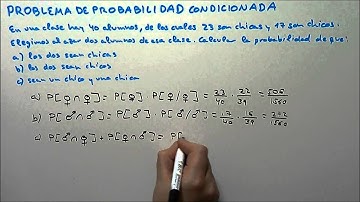 PROBLEMA DE PROBABILIDAD CONDICIONADA
En una clase hay 40 alumnos, de los cuales 23 son chicas y 17 son chicos.
Elegimos al azar dos alumnos de esa clase. Calcular la probabilidad de que:
a) los dos sean chicas
b) los dos sean chicos
c) sean un chico y una chica
a) P[♀∩♀] = P[♀] · P[♀/♀] = 23/40 · 22/39 = 506/1560
b) P[♂∩♂] = P[♂] · P[♂/♂] = 17/40 · 16/39 = 272/1560
c) P[♂∩♀] + P[♀∩♂] = P[